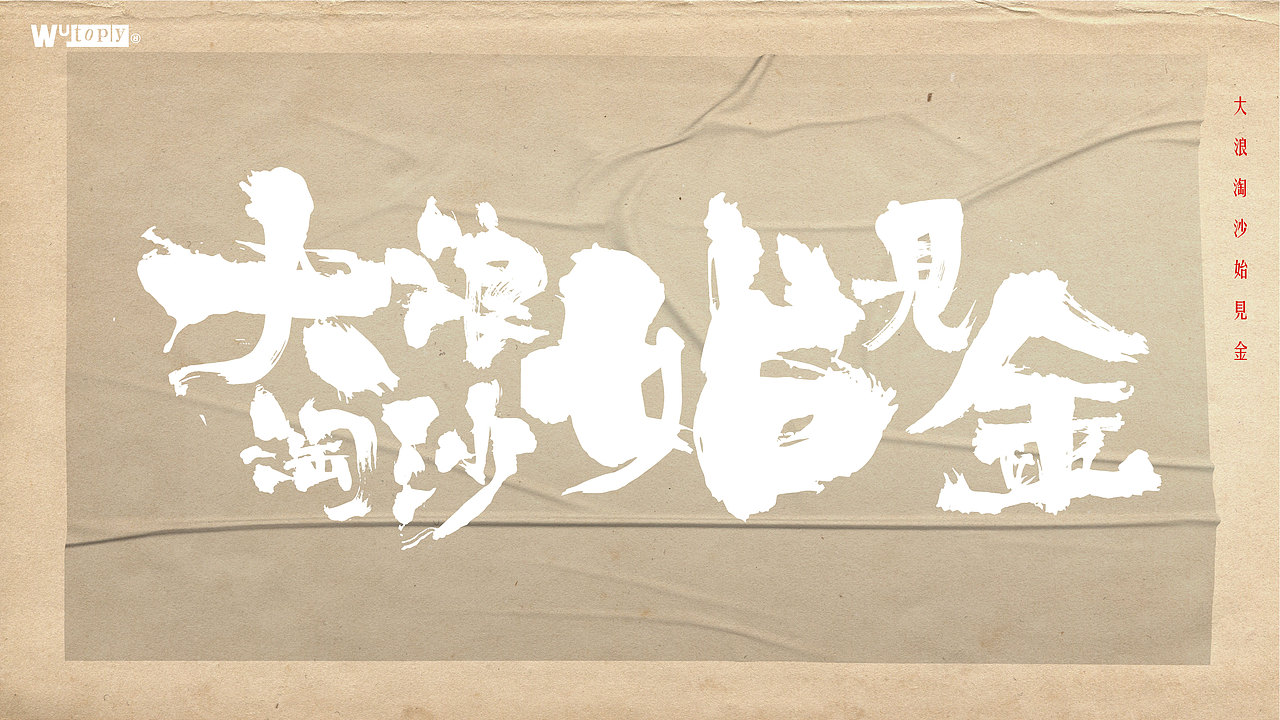 Wutoply®
大浪淘沙始見金
大浪淘沙始見金